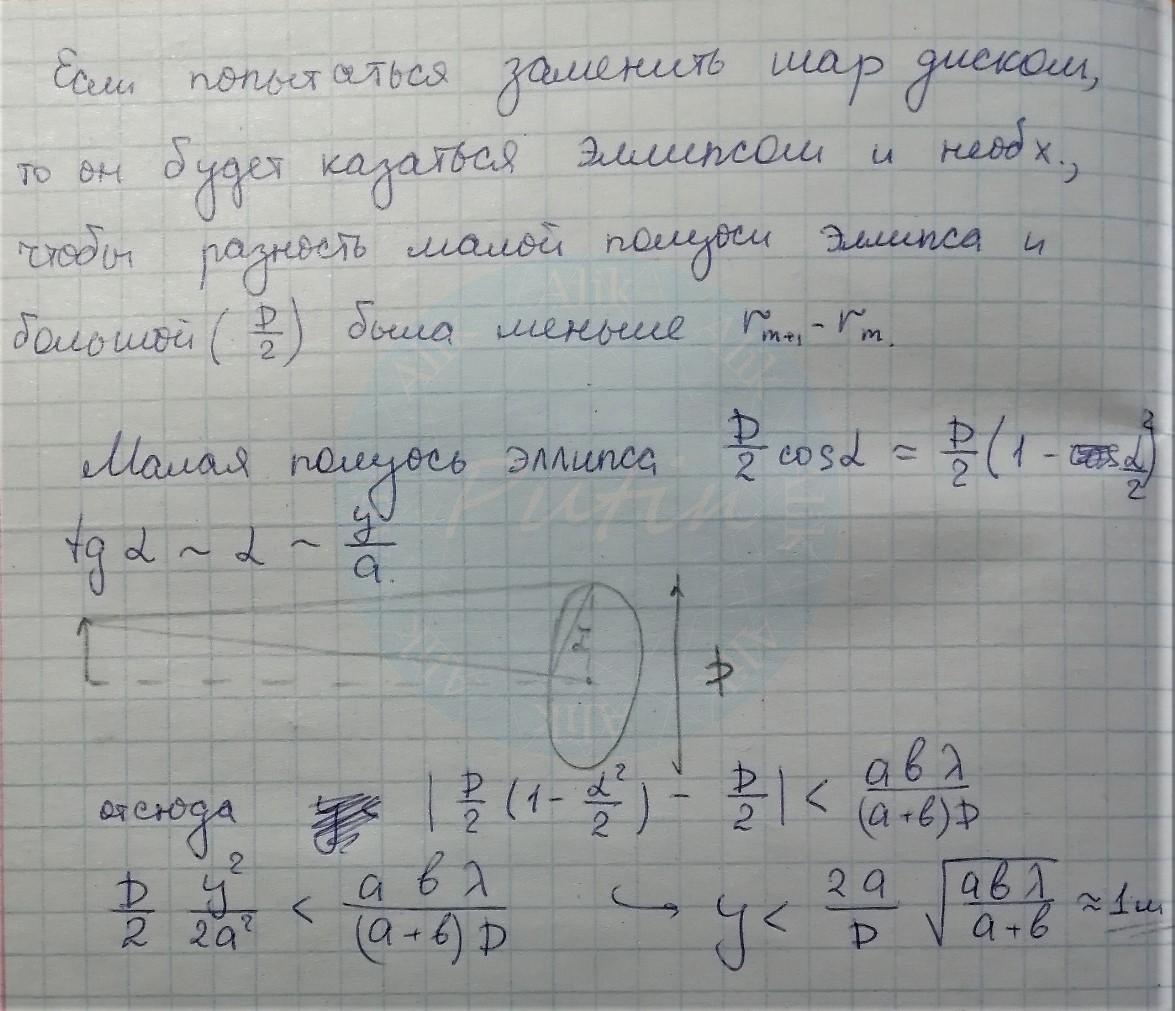 Если попытаться заменить шар диском,
то он будет казаться эллипсом и необх.,
чтобы разность малой полуоси эллипса и
большой (D/2) была меньше r_{m+1} - r_m.
Малая полуось эллипса D/2 cosα = D/2 (1 - α/2)²
tg α ~ α ~ y/a.
α
D
отсюда | D/2 (1 - α²/2) - D/2 | < aвλ/((a+в)D)
D/2 y²/2a² < aвλ/((a+в)D) ↪ y < 2a/D √(aвλ/(a+в)) ≈ 1м
Alik
Alik
Alik
Putin
Alik
Alik
Alik